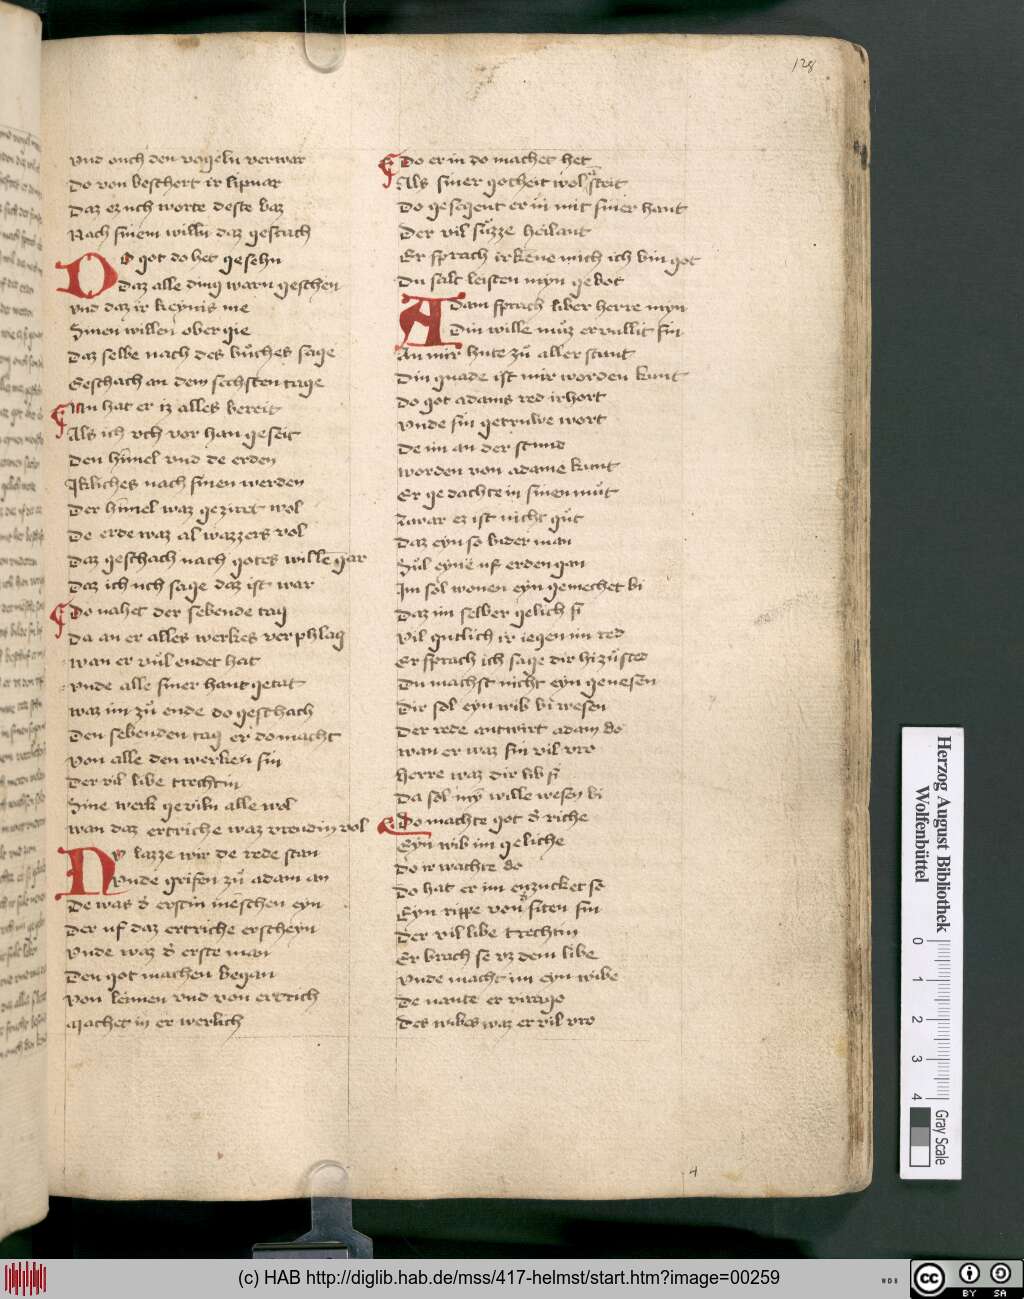 128
vnd ouch den vogeln verwar
Do von beschert ir lipnar
Daz ez uch worte deste baz
Nach sinem willn daz geschach
Do got do het gesehn
Daz alle ding warn geschen
vnd daz ir keynis me
Sinen willen ober gie
Daz selbe nach des bůches sage
Geschach an dem sechsten tage
Nu hat er iz alles bereit
Als ich vch vor han geseit
Den himel vnd de erden
Ikliches nach sinen werden
Der himel waz geziret wol
De erde waz al wazzers vol
Daz geschach nach gotes wille gar
Daz ich uch sage daz ist war
Do nahet der sebende tag
Da an er alles werkes verphlag
wan er vůl endet hat
vnde alle siner hant getat
waz im zů ende do geschach
Den sebenden tag er do macht
von alle den werken sin
Der vil libe trechtin
Sine werk geviln alle wol
wan daz ertriche waz vroudin vol
Nv lazze wir de rede stan
Vnde grifen zů adam an
De was d' erstin meschen eyn
Der uf daz ertriche erscheyn
vnde waz d' erste man
Den got machen began
von leimen vnd von ertrich
Machet in er werlich
Do er in do machet het
Als siner gotheit wol steit
Do gesegent er in mit siner hant
Der vil sůzze heilant
Er sprach irkene mich ich bin got
Du salt leisten myn gebot
Adam sprach liber herre myn
Din wille můz er vullit sin
An mir hute zů aller stunt
Din gnade ist mir worden kunt
Do got adams red irhort
vnde sin getruwe wort
De im an der stund
worden von adame kunt
Er gedachte in sinen můt
Zwar ez ist nicht gůt
Daz eyn so bider man
Sůl eyne uf erden gan
Im sol wonen eyn gemechet bi
Daz im selber gelich si
vil gutlich ir iegen im red
Er sprach ich sage dir hi zů sted
Du machst nicht eyn genesen
Dir sol eyn wib bi wesen
Der rede antwirt adam do
wan er waz sin vil vro
Herre waz dir lib si
Da sol my wille wesen bi
Do machte got d' riche
Eyn wib im geliche
Do ir wachte do
Do hat er im enzucket so
Eyn rippe von siten sin
Der vil libe trechtin
Er brach se vz dem libe
vnde macht im eyn wibe
De nante er virago
Des wibes waz er vil vro
4
Herzog August Bibliothek
Wolfenbüttel
0 1 2 3 4
Gray Scale
(c) HAB http://diglib.hab.de/mss/417-helmst/start.htm?image=00259
WDB
cc BY SA